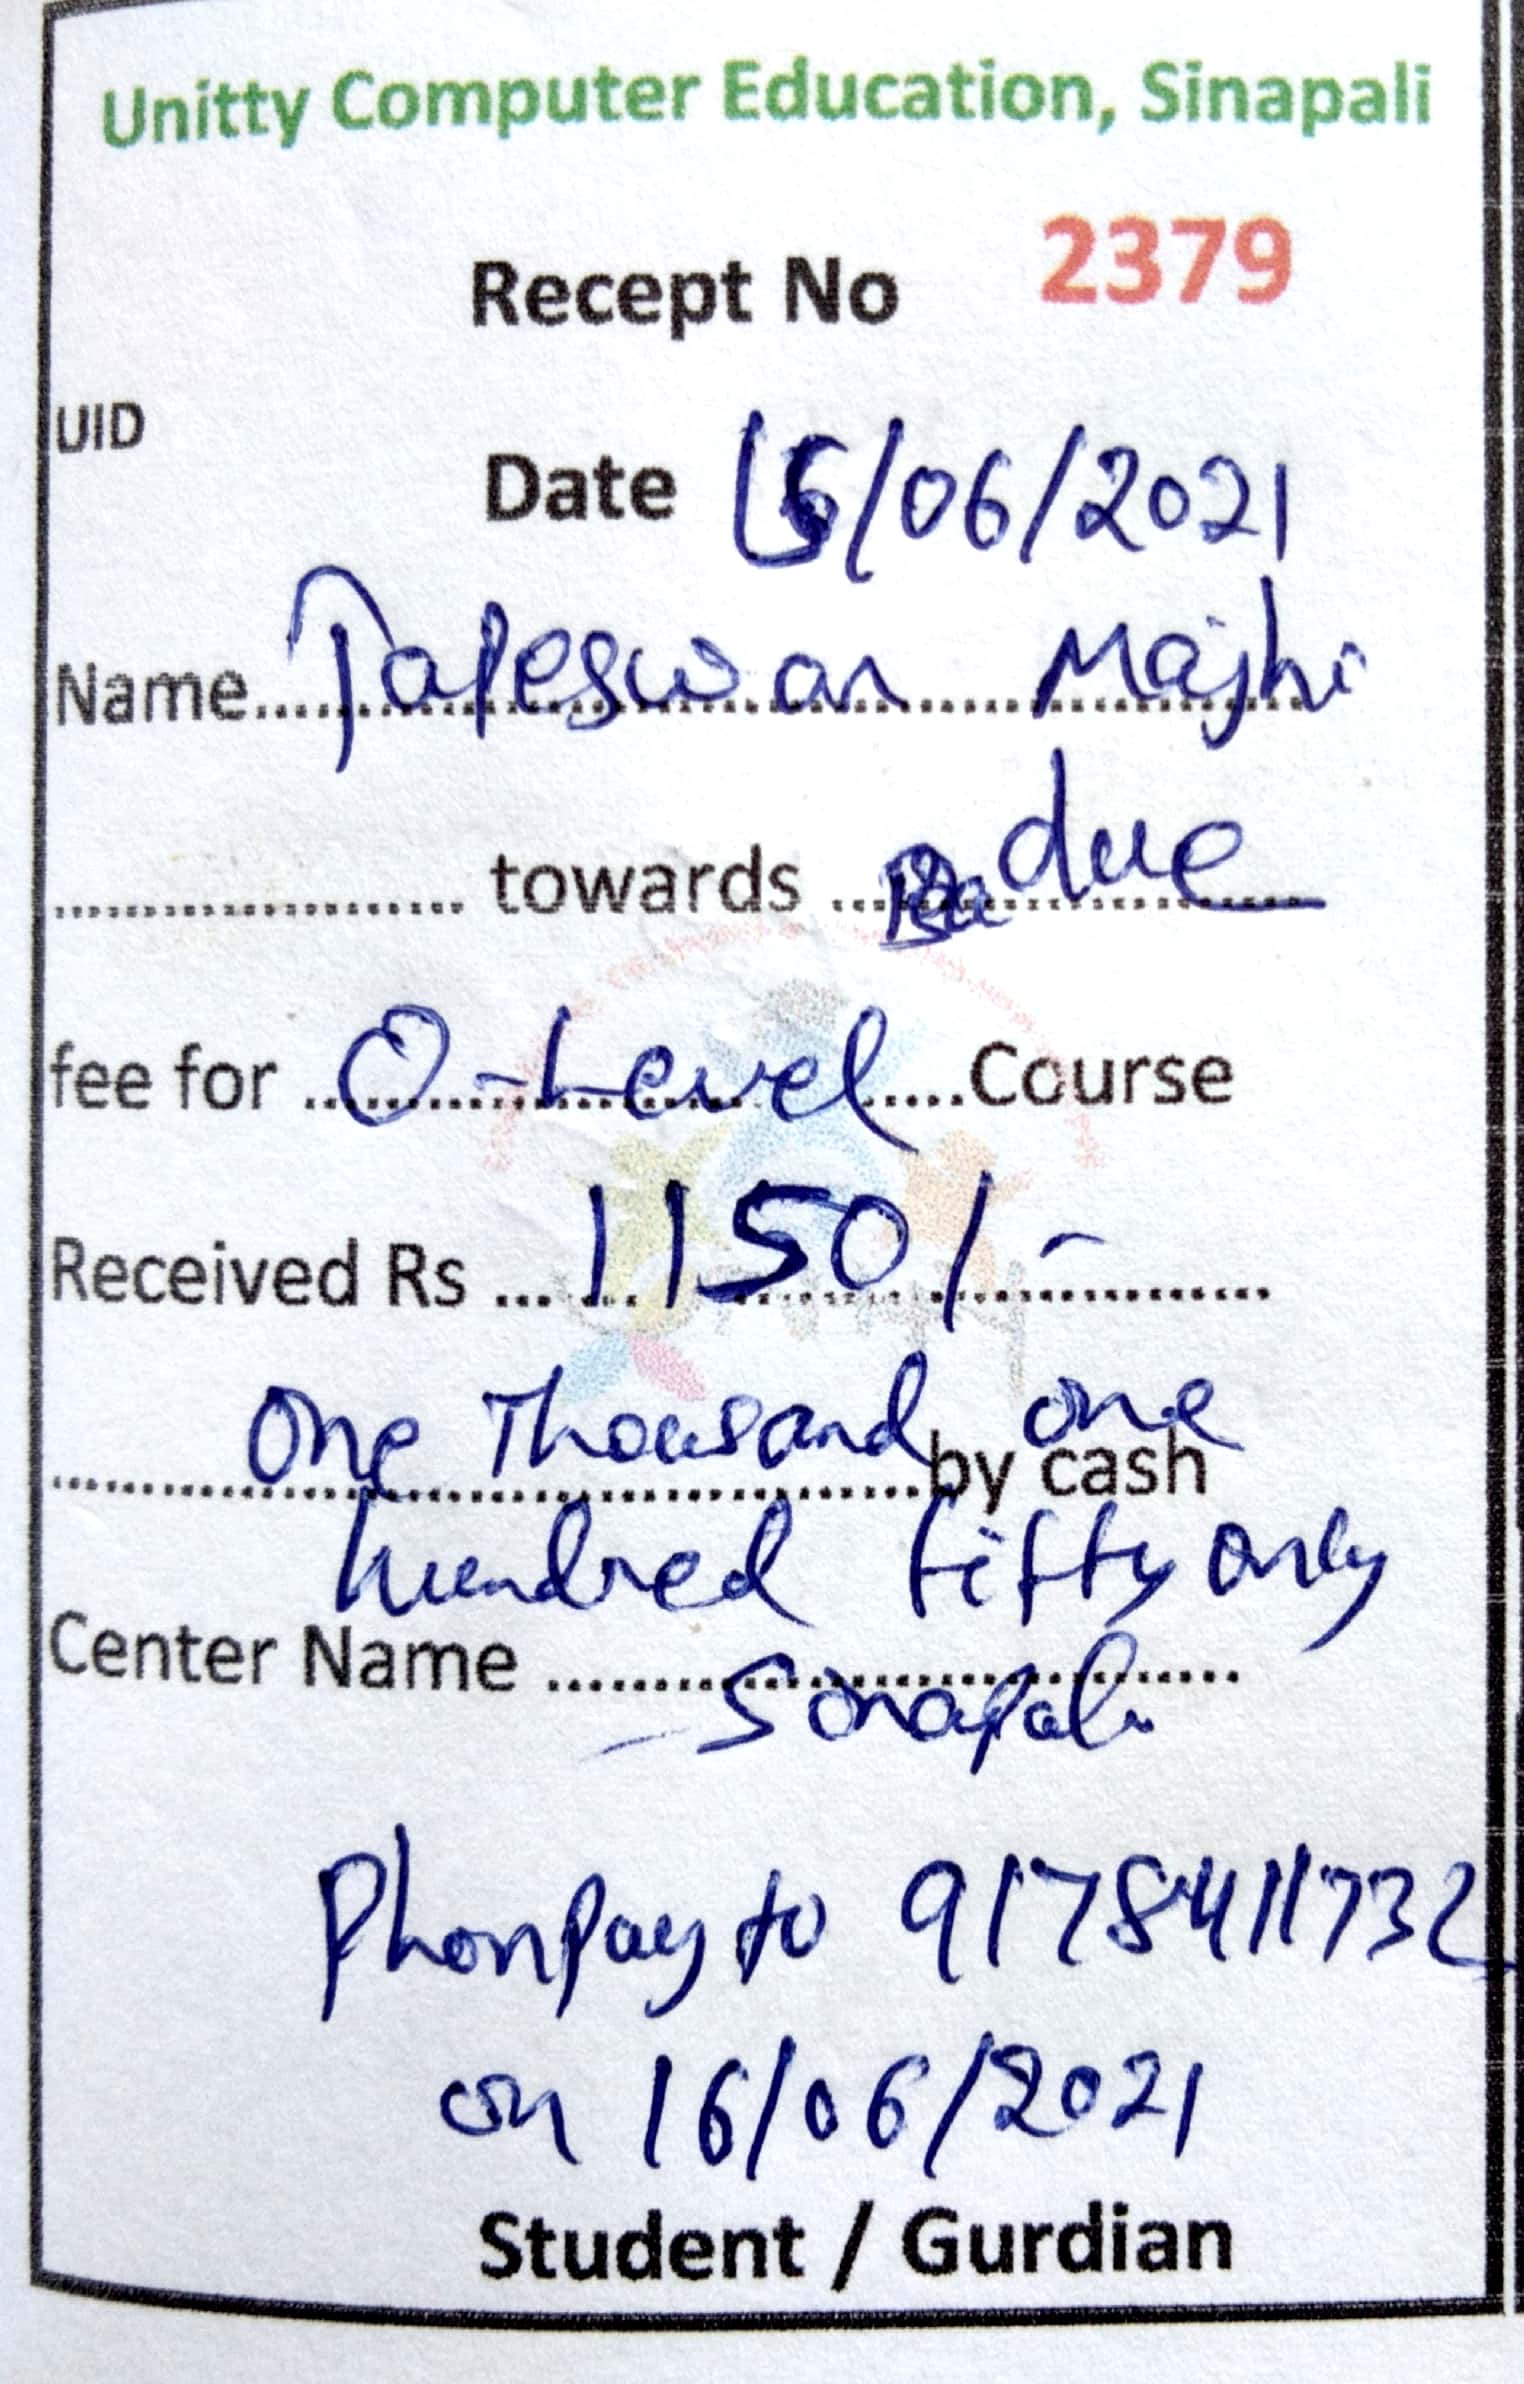 Unitty Computer Education, Sinapali
Recept No 2379
UID
Date 16/06/2021
Name....Tapeswar Majhi
.................... towards ... due
fee for ...O-Level.....Course
Received Rs ...1150/-............
One Thousand one
........................................by cash
hundred fifty only
Center Name ................................
Sinapali
Phonpay to 9178411732
on 16/06/2021
Student / Gurdian